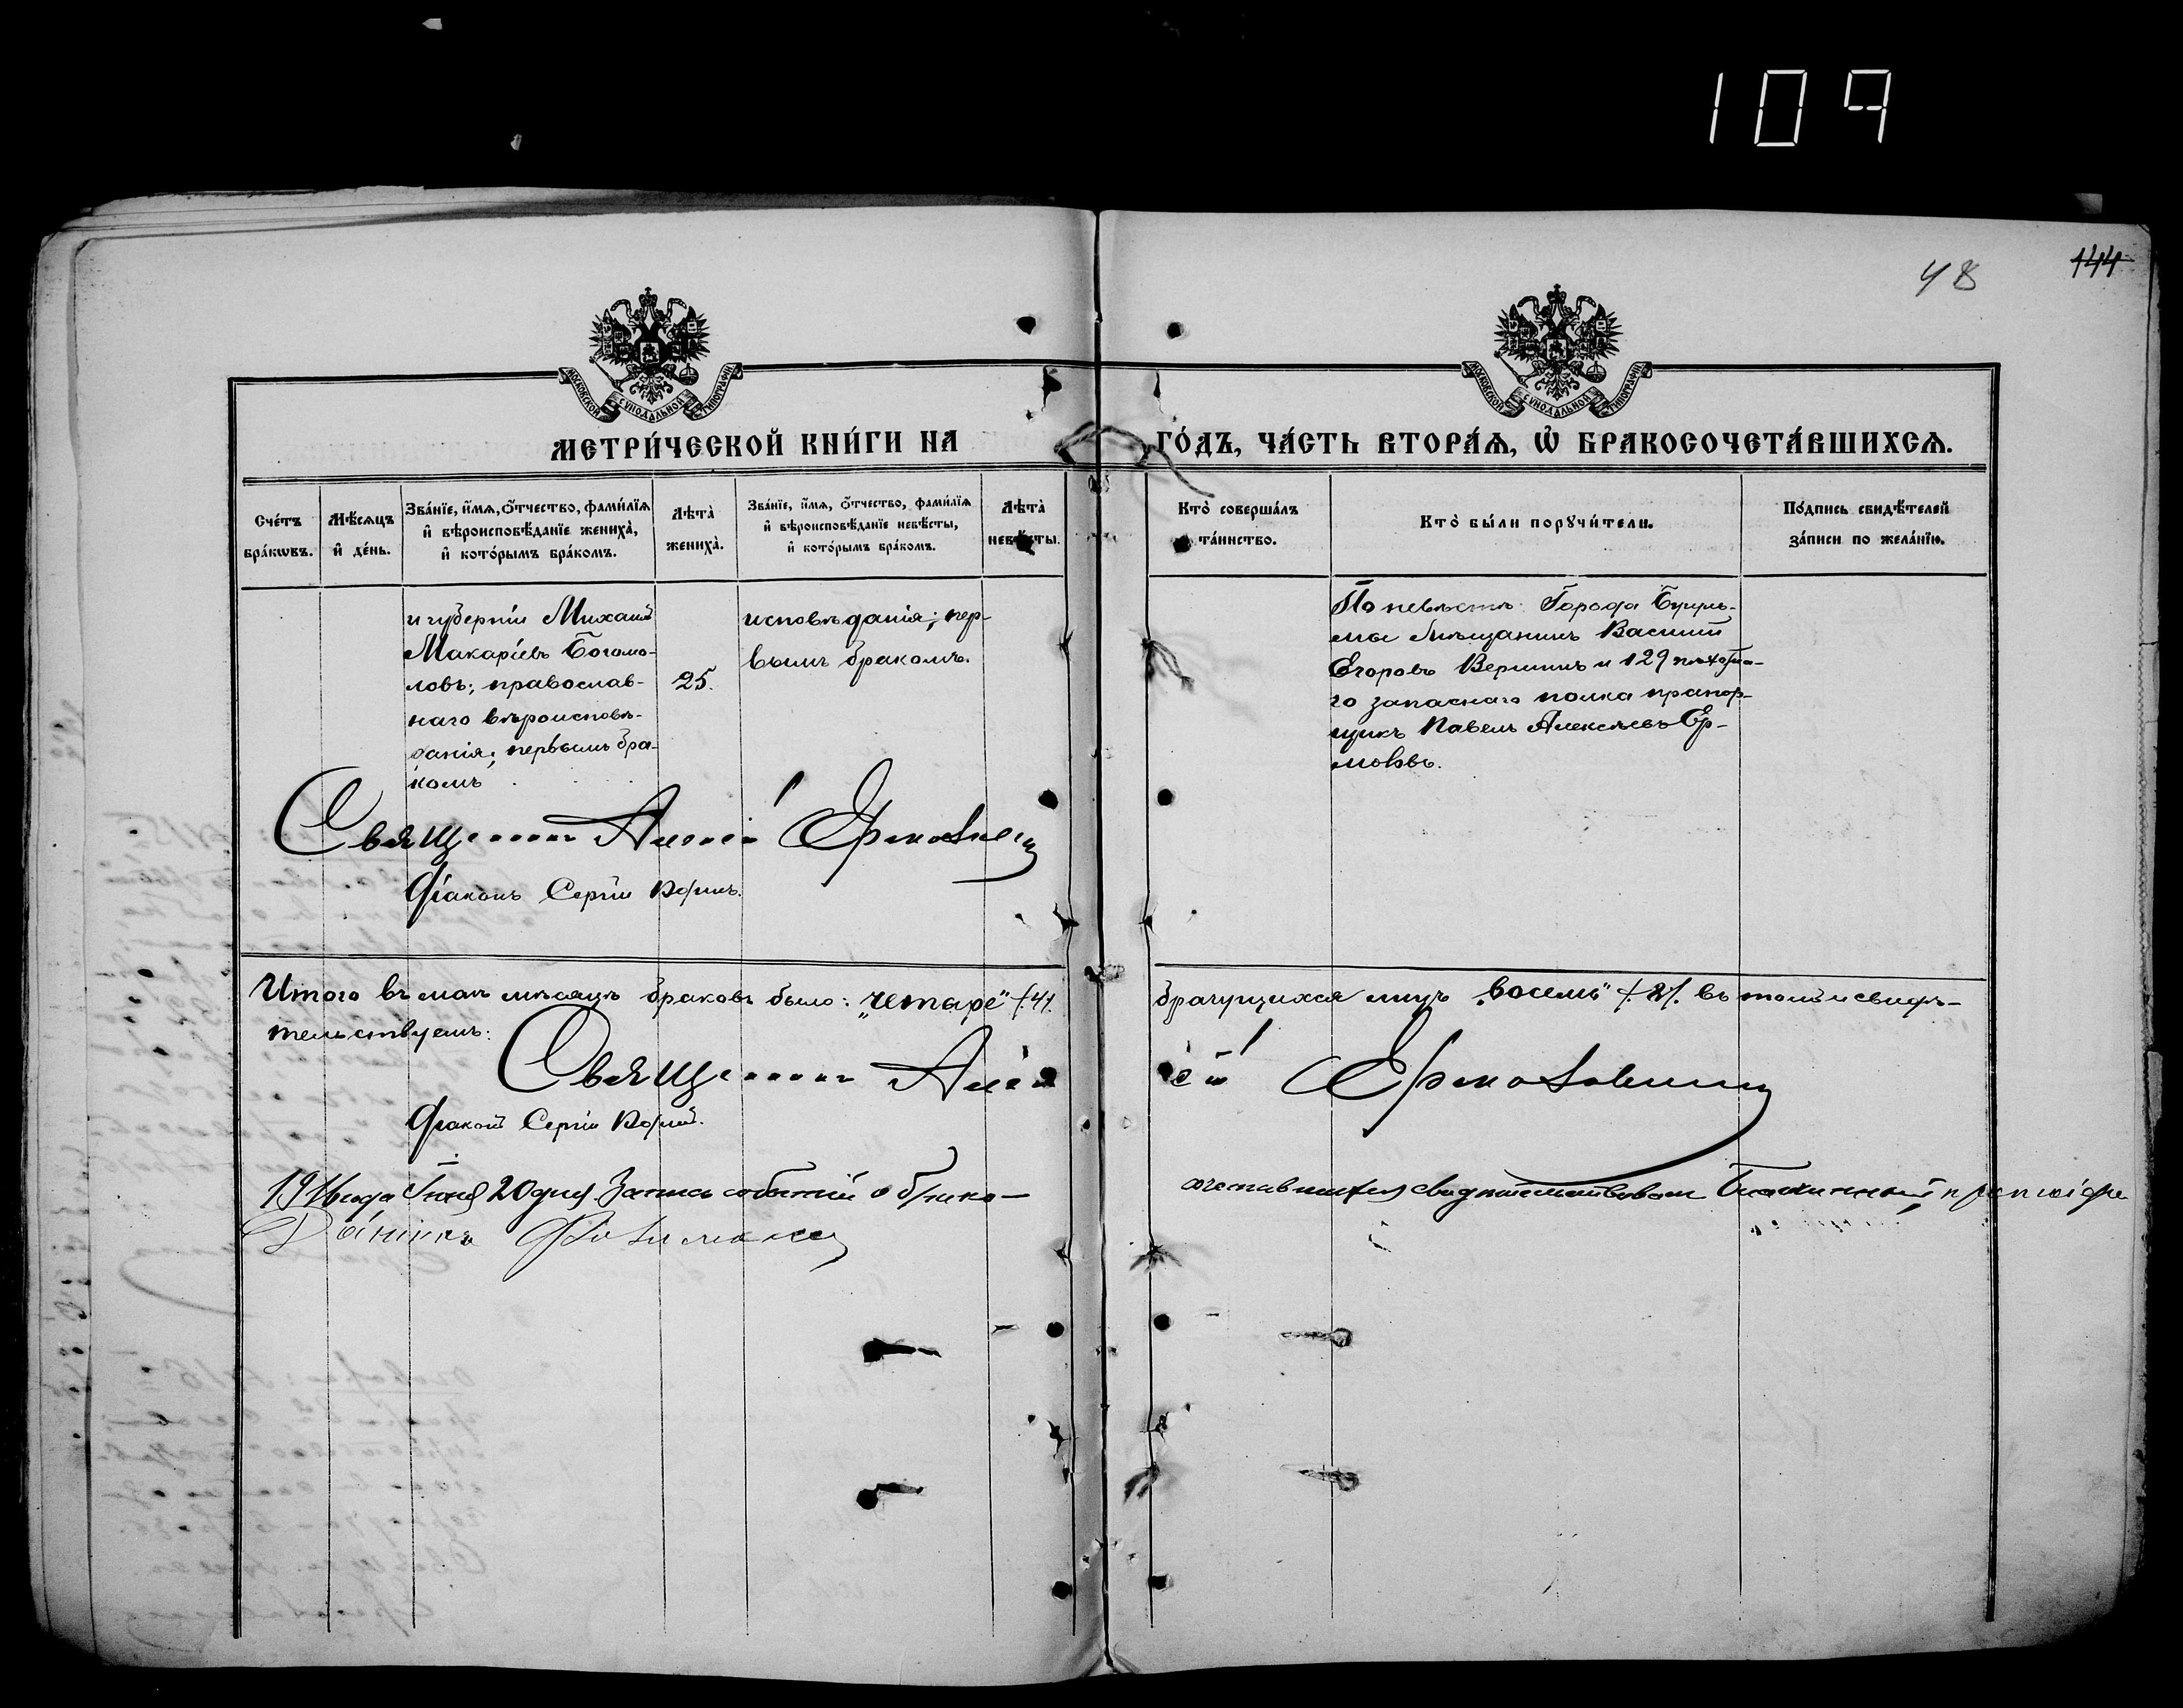 109
48
144
МОСКОВСКОЙ СѴНОДАЛЬНОЙ ТИПОГРАФІИ
МОСКОВСКОЙ СѴНОДАЛЬНОЙ ТИПОГРАФІИ
МЕТРИ́ЧЕСКОЙ КНИ́ГИ НА
ГО́ДЪ, ЧА́СТЬ ВТОРА́Я, Ѽ БРАКОСОЧЕТА́ВШИХСЯ.
Сче́тъ
бра́кωвъ.
Мѣ́сяцъ
и҆ де́нь.
Зва́нїе, и҆́мя, ѻ҆́тчество, фами́лїя
и҆ вѣроисповѣ́данїе жениха̀,
и҆ кото́рымъ бра́комъ.
Лѣта̀
жениха̀.
Зва́нїе, и҆́мя, ѻ҆́тчество, фами́лїя
и҆ вѣроисповѣ́данїе невѣ́сты,
и҆ кото́рымъ бра́комъ.
Лѣта̀
невѣ́сты.
Кто̀ соверша́лъ
та́инство.
Кто̀ бы́ли порꙋчи́тели.
По́дпись свидѣ́телей
за́писи по жела́нїю.
и губерніи Михаилъ
Макаріевъ Богомо-
ловъ; православ-
наго вѣроисповѣ-
данія; первымъ бра-
комъ
25.
исповѣданія; пер-
вымъ бракомъ.
По невѣстѣ: Города Бугуль-
мы мѣщанинъ Василій
Егоровъ Вершинъ и 129 пѣхотна-
го запаснаго полка прапор-
щикъ Павелъ Алексѣевъ Ер-
моловъ.
Священникъ Алексій
Діаконъ Сергій
Итого въ маѣ мѣсяцѣ браковъ было: „четыре" /:4/.
брачущихся лицъ „восемь" /:8/. въ томъ и свидѣ-
тельствуемъ:
Священникъ Алексій
Діаконъ Сергій
1916 года Іюня 20 дня Запись событій о брако-
сочетавшихся свидѣтельствовалъ Благочинный